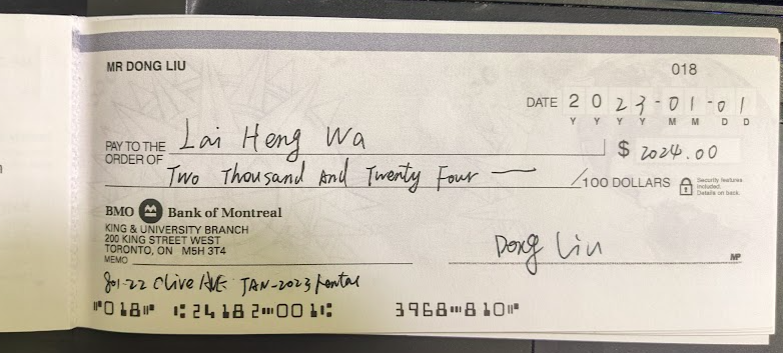 MR DONG LIU
018
DATE 2023-01-01
Y Y Y Y M M D D
PAY TO THE ORDER OF Lai Heng Wa $ 2024.00
Two Thousand And Twenty Four — /100 DOLLARS
Security features included. Details on back.
BMO Bank of Montreal
KING & UNIVERSITY BRANCH
200 KING STREET WEST
TORONTO, ON M5H 3T4
Dong Liu
MP
MEMO 801-22 Olive AVE JAN-2023 rental
⑈018⑈ ⑆24182⑉001⑆ 3968⑉810⑈